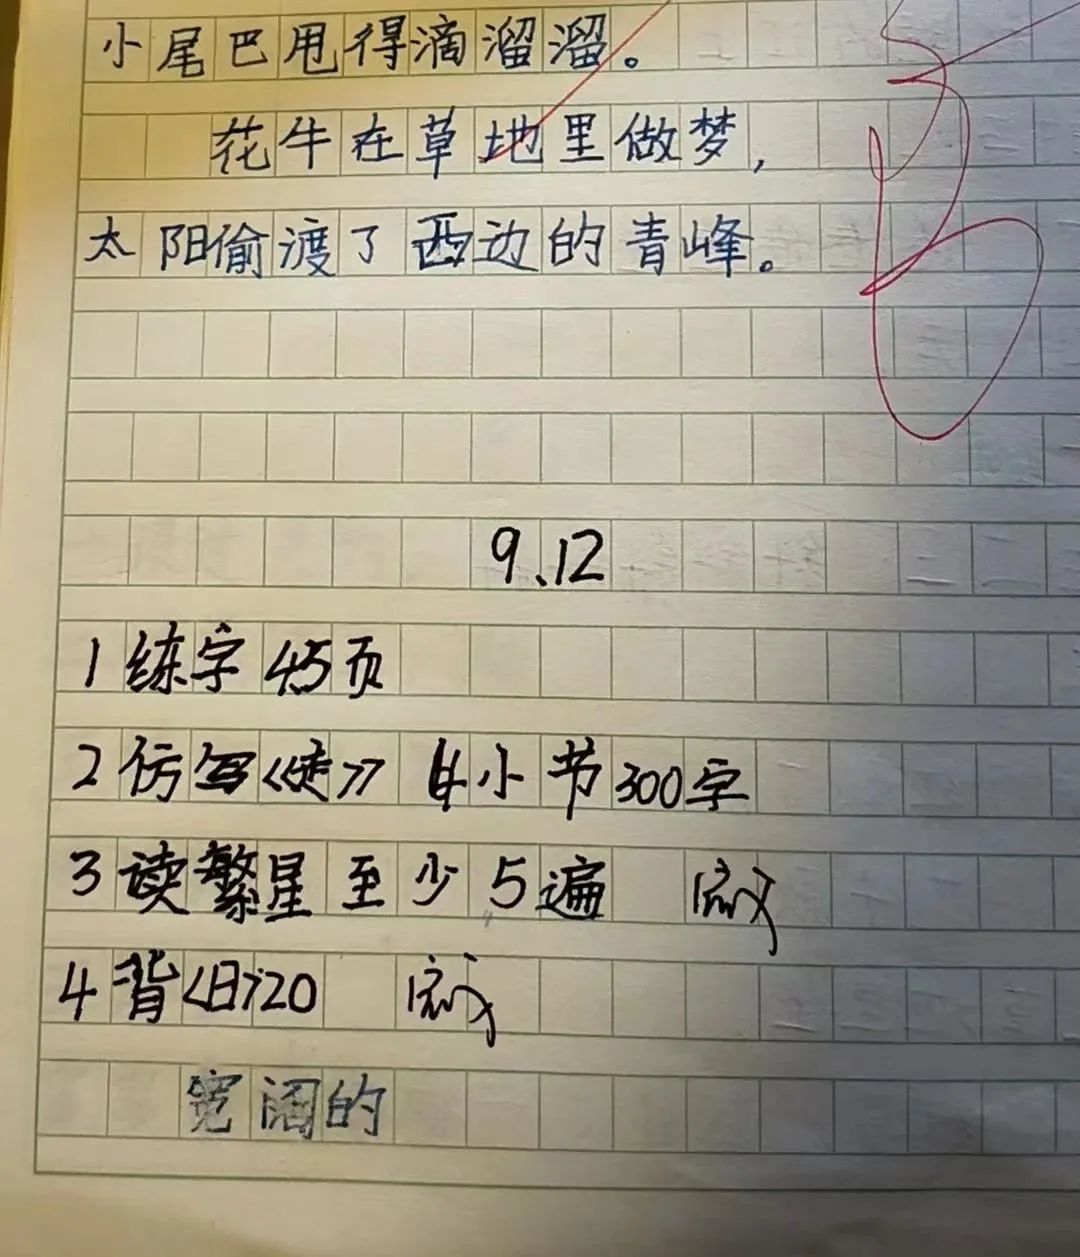 小尾巴甩得滴溜溜。
花牛在草地里做梦,
太阳偷渡了西边的青峰。
9.12
1 练字 45页
2 仿写《走》 4小节300字
3 读繁星至少5遍
4 背<日>20
宽阔的